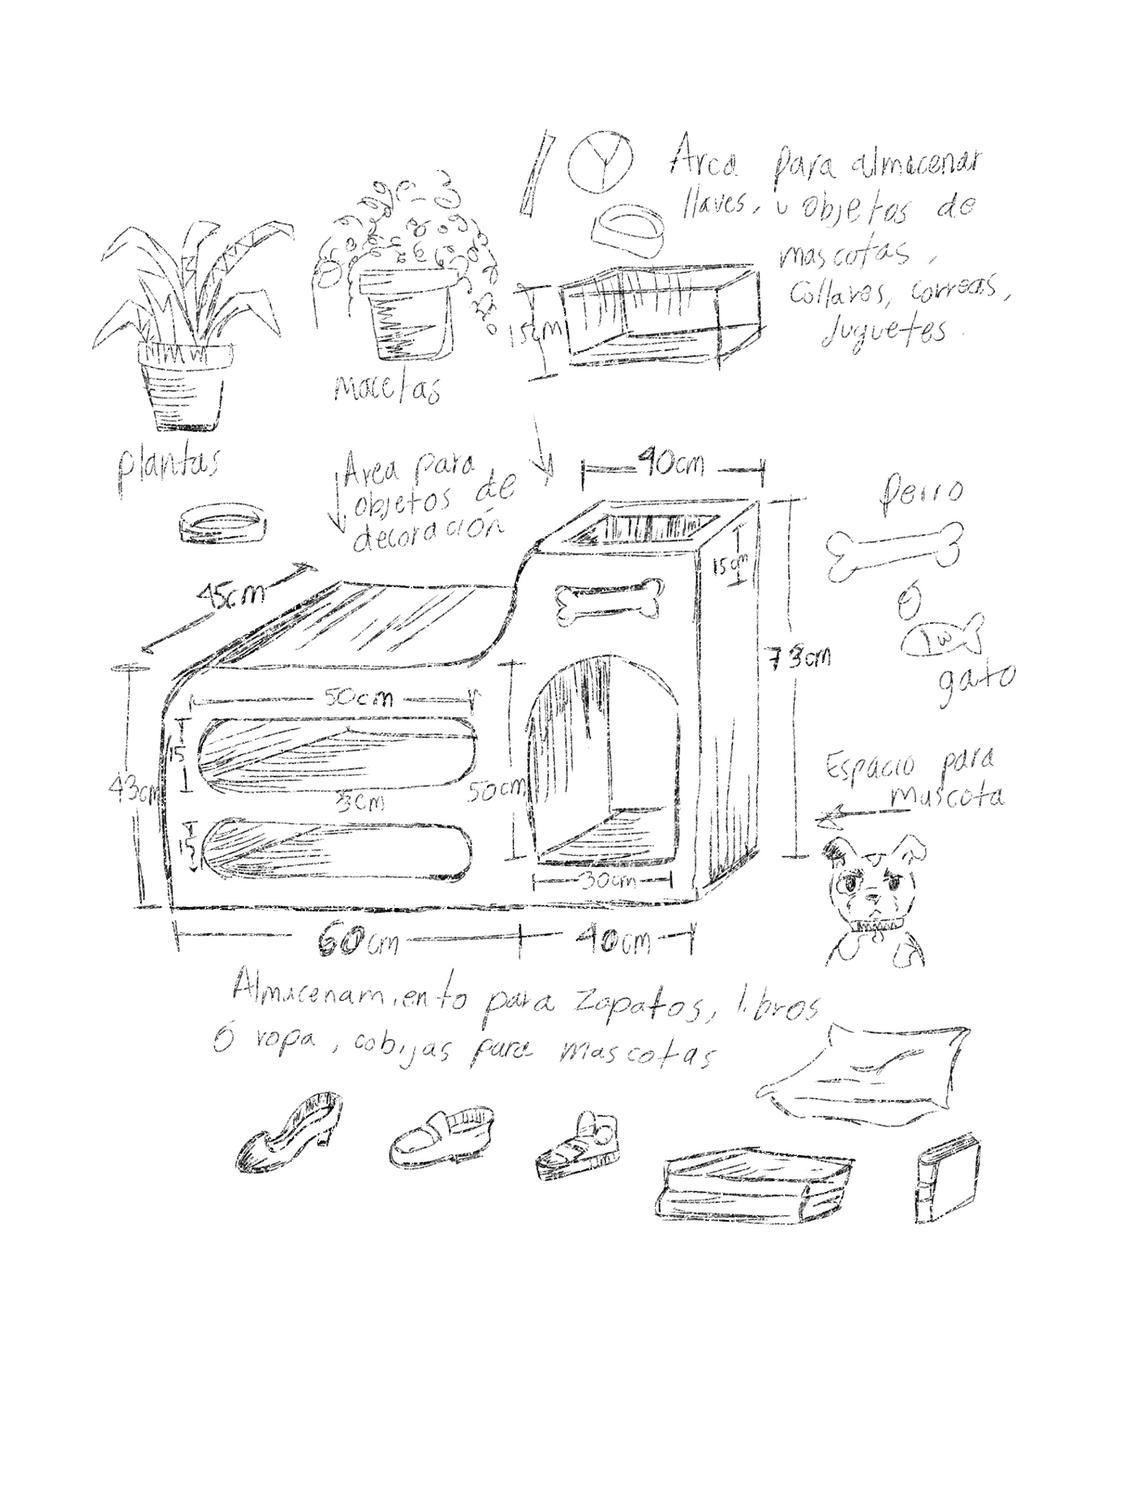 Area para almacenar
llaves, u objetos de
mascotas,
Collares, correas,
Juguetes.
15cm
macetas
plantas
Area para
objetos de
decoración
40cm
perro
15cm
45cm
ó
gato
73cm
50cm
15
43cm
3cm
50cm
Espacio para
mascota
15
30cm
60cm
40cm
Almacenamiento para zapatos, libros
ó ropa, cobijas para mascotas